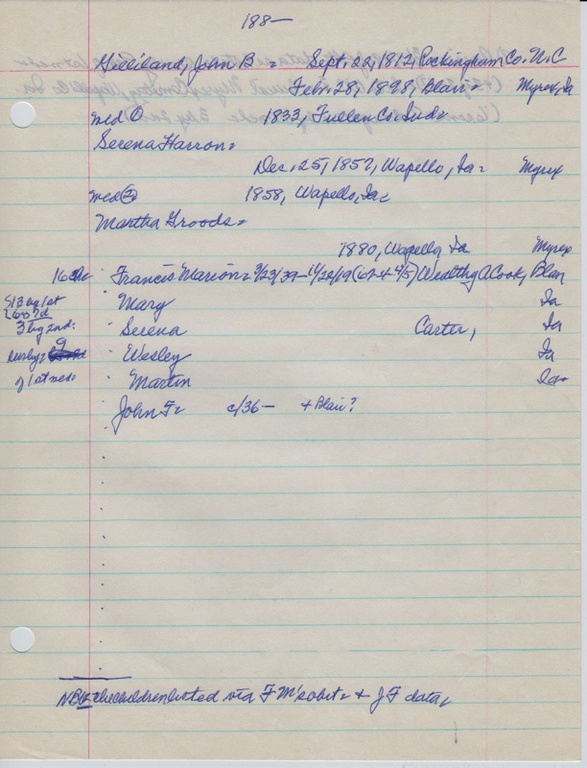 188—
Gilliland, John B = Sept. 22, 1812, Rockingham Co. N.C
Febr. 28, 1898, Blair = Myrex, Ia
med ① 1833, Fullen Co. Ind=
Serena Harron=
Dec. 25, 1857, Wapello, Ia= Myrex
med ② 1858, Wapello, Ia=
Martha Groods=
1880, Wapello, Ia Myrex
16 ch= Francis Marion= 3/23/37– (62 Wealthy A Cook, Blair
S13 by 1st Mary Ia
3 by 2nd: Serena Carter, Ia
9 Wesley Ia
of 1st med= Martin Ia=
John F= c/36— + Blair?
NB= the children listed via F M's obit= + J F data,